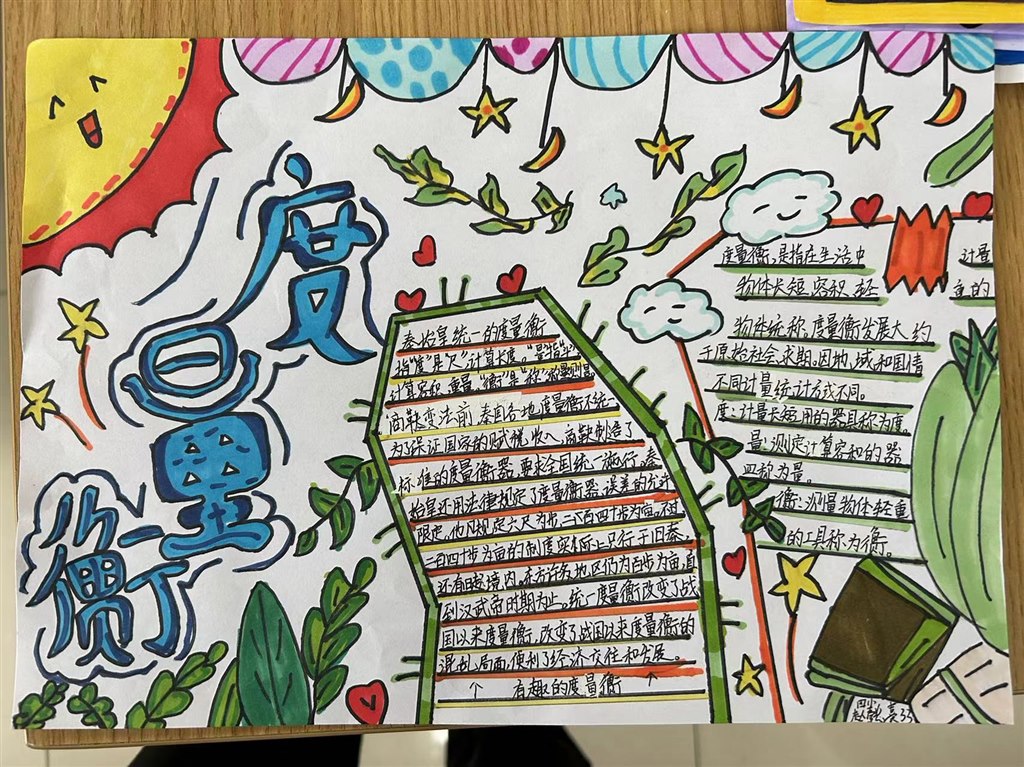 度量衡
秦始皇统一的度量衡
指"度"是"尺"计算长度。"量"指"斗"
计算容积、重量。"衡"是"称"
商鞅变法前,秦国各地度量衡不统一
为了保证国家的赋税收入,商鞅制造了
标准的度量衡器,要求全国统一施行。秦
始皇还用法律规定了度量衡器误差的允许
限定。他凡规定六尺为步,二百四十步为亩。不过
二百四十步为亩的制度实际上只行于旧秦,
还有旧赵境内,东方许多地区仍为百步为亩,直
到汉武帝的期为止。统一度量衡改变了战
国以来度量衡,改变了战国以来度量衡的
混乱局面,便利了经济交往和发展。
↑ 有趣的度量衡 ↑
度量衡,是指在生活中 计量
物体长短、容积、轻 重的
物体统称,度量衡发展大约
于原始社会末期。因地域和国情
不同计量统计方式不同。
度:计量长短用的器具称为度
量:测定计算容和的器
皿称为量。
衡:测量物体轻重
的工具称为衡。